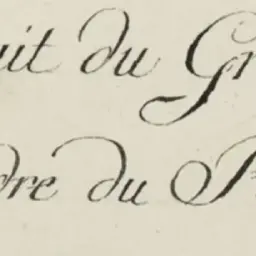 uit du Gr
dre du P